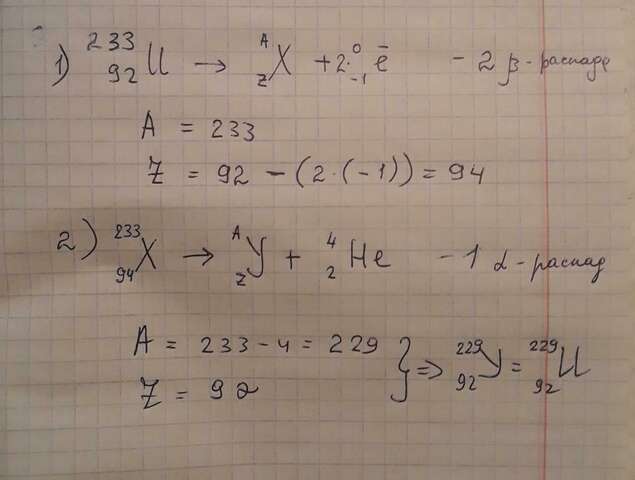 1) ²³³₉₂U → ᴬzX + 2·⁰₋₁ē - 2 β-распада
A = 233
Z = 92 - (2·(-1)) = 94
2) ²³³₉₄X → ᴬzY + ⁴₂He - 1 α-распад
A = 233 - 4 = 229
Z = 92
} => ²²⁹₉₂Y = ²²⁹₉₂U